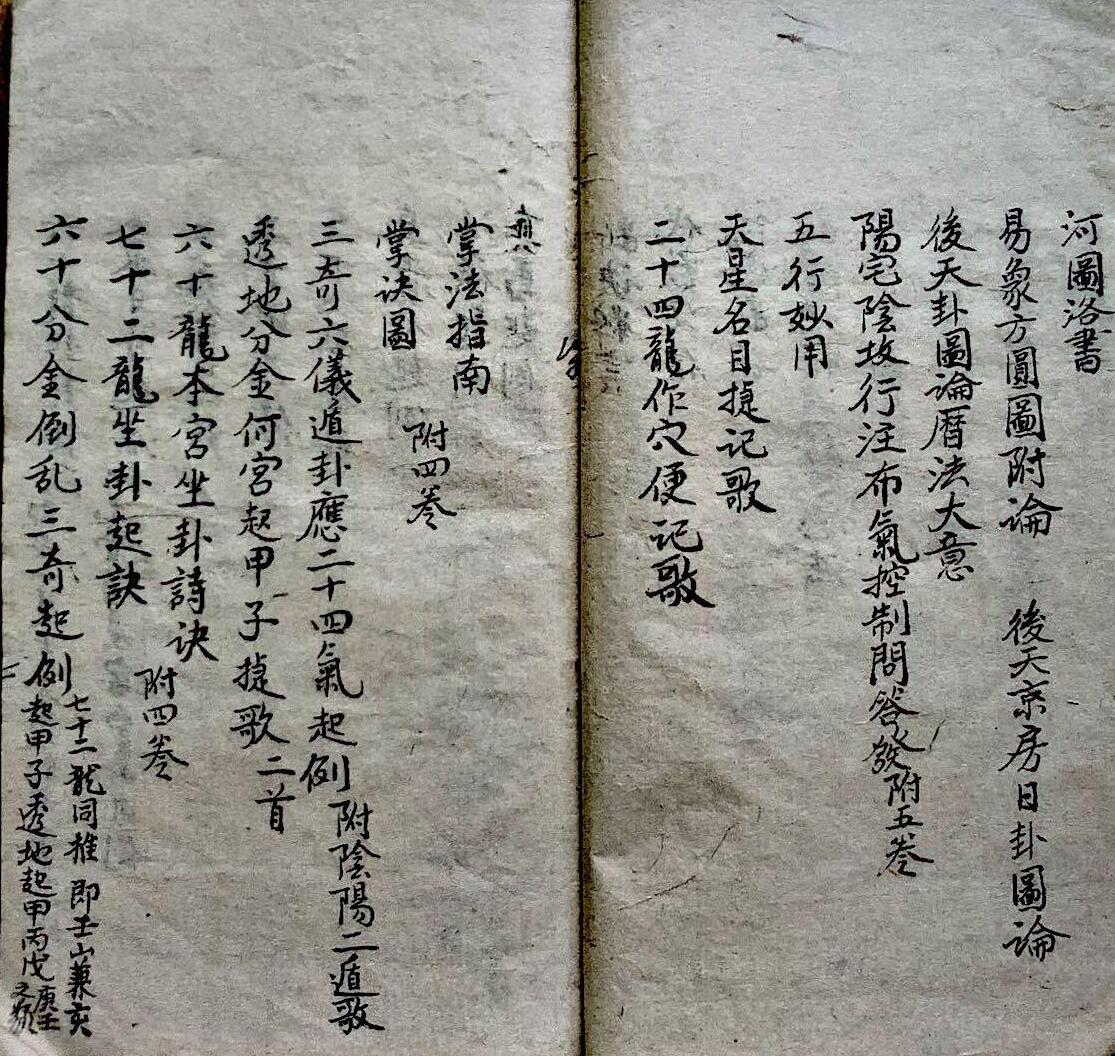 河圖洛書
易象方圓圖附論 後天京房日卦圖論
後天卦圖論曆法大意
陽宅陰坟行注布氣控制問答 附五巻
五行妙用
天星名目㨗记歌
二十四龍作穴便记歌
掌法指南
掌诀圖 附四巻
三奇六儀遁卦應二十四氣起例 附陰陽二遁歌
透地分金何宮起甲子㨗歌 二首
六十龍本宮坐卦詩诀
七十二龍坐卦起訣 附四巻
六十分金倒乱三奇起例 七十二龍同推即壬山兼亥
起甲子透地起甲丙戊庚壬之類